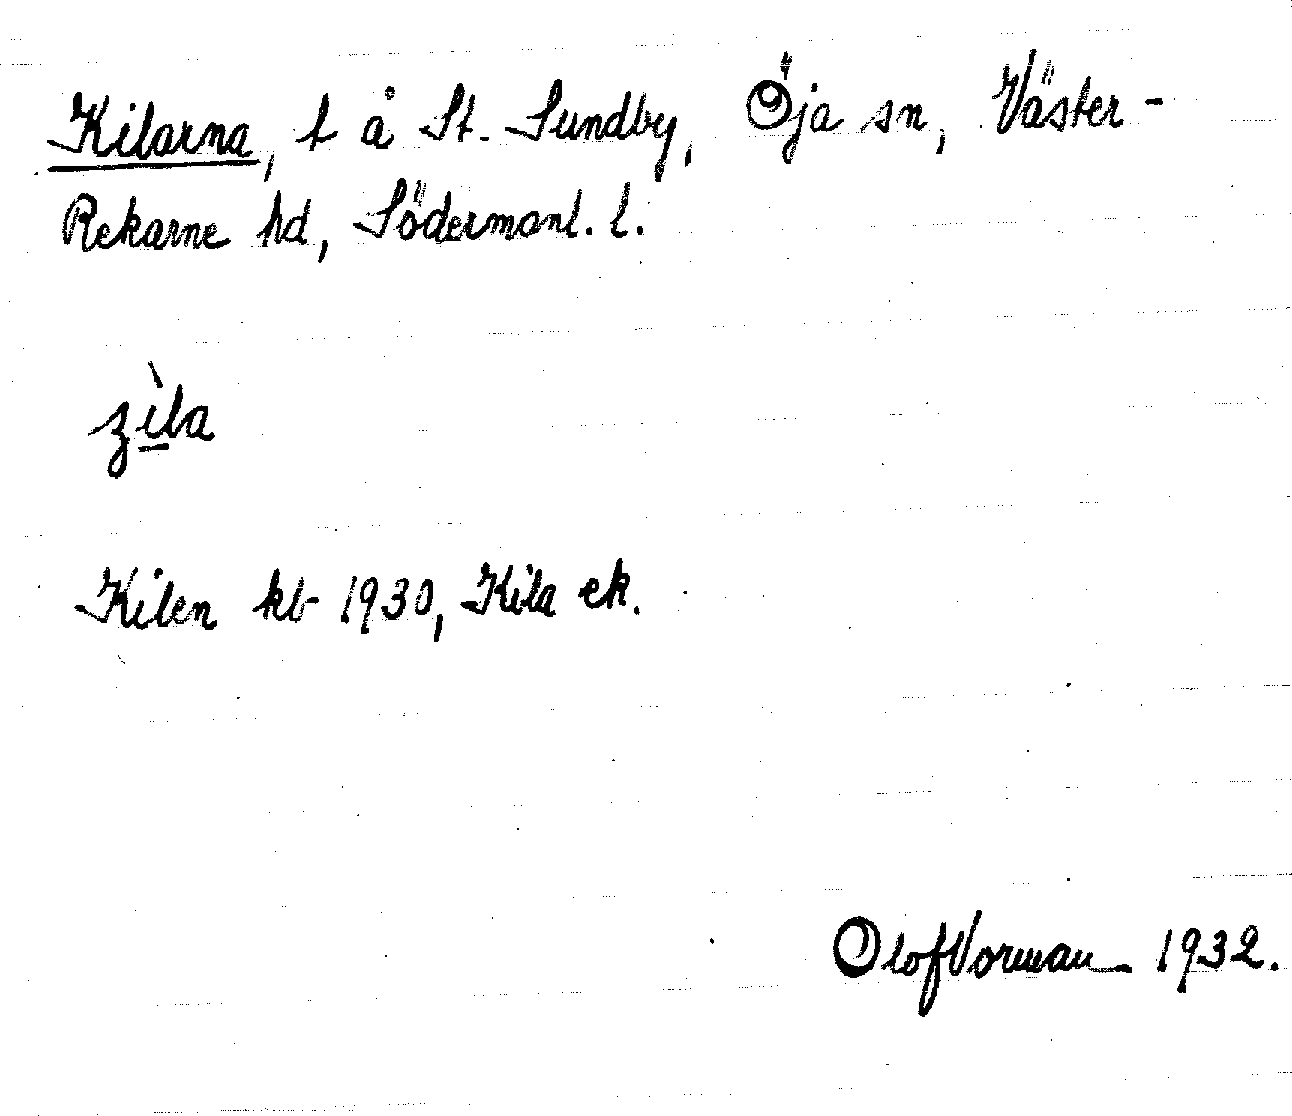 Kilarna, t å St. Sundby, Öja sn, Väster-
Rekarne hd, Södermanl. l.
zìla
Kilen kb 1930, Kila ek.
Olof Vorman 1932.